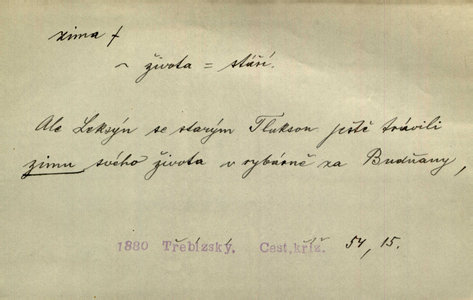 zima f
~ života = stáří.
Ale Leksýn se starým Flukson ještě trávili
zimu svého života v rybárně za Budňany,
1880 Třebízský, Cest.kříž. 54, 15.